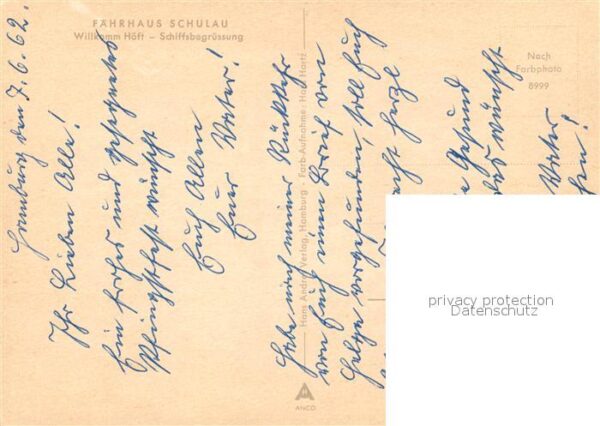 FÄHRHAUS SCHULAU
Willkomm Höft – Schiffsbegrüssung
Nach
Farbphoto
8999
Hamburg den 7.6.62.
Ihr Lieben Alle!
Ein frohes und gesegnetes
Pfingstfest wünscht
Euch Allen
Euer Vater!
Habe nach meiner Rückkehr
von Euch einen Brief von
Helga vorgefunden, soll Euch
recht herzl
Gesund
wünscht
Vater
Hans Andres Verlag, Hamburg - Farb-Aufnahme: Hans Hartz
ANCO
privacy protection
Datenschutz